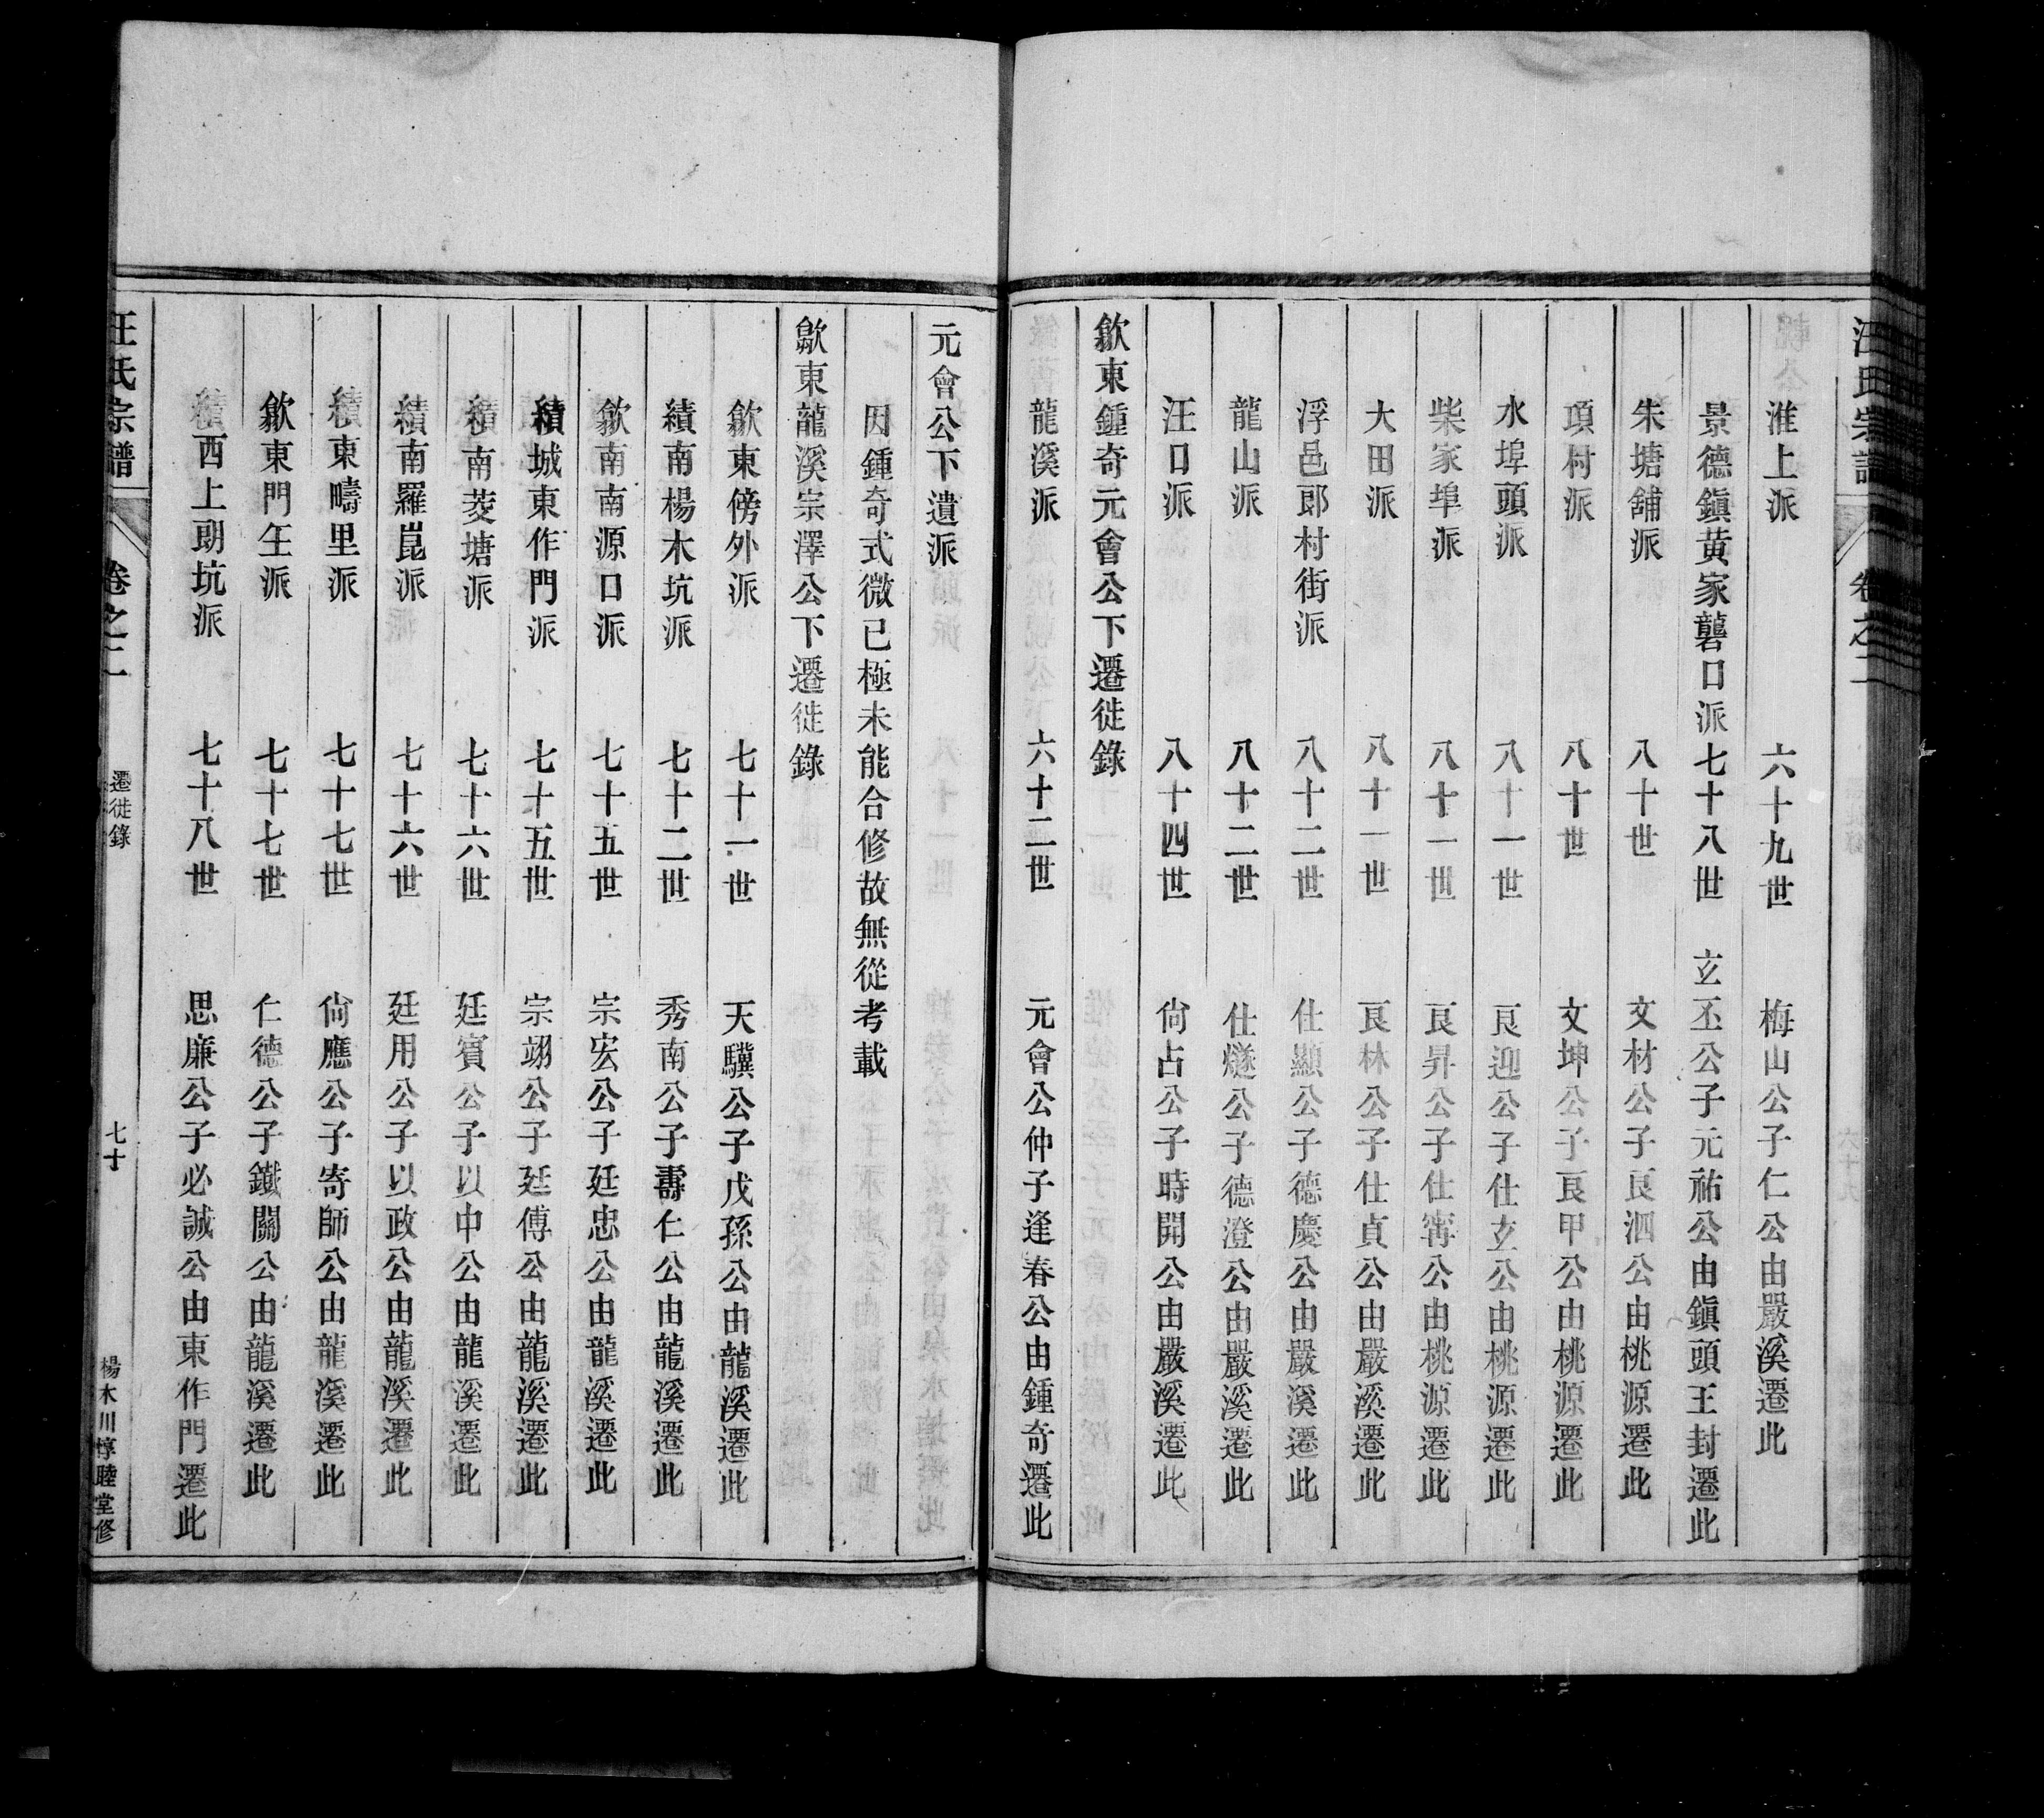 汪氏宗譜 卷之二
淮上派 六十九世 梅山公子仁公由嚴溪遷此
景德鎭黄家礱口派 七十八世 玄丕公子元祐公由鎭頭王封遷此
朱塘舖派 八十世 文材公子良泗公由桃源遷此
項村派 八十世 文坤公子良甲公由桃源遷此
水埠頭派 八十一世 良迎公子仕玄公由桃源遷此
柴家埠派 八十一世 良昇公子仕甯公由桃源遷此
大田派 八十一世 良林公子仕貞公由嚴溪遷此
浮邑郎村街派 八十二世 仕顯公子德慶公由嚴溪遷此
龍山派 八十二世 仕燧公子德澄公由嚴溪遷此
汪口派 八十四世 尙占公子時開公由嚴溪遷此
歙東鍾奇元會公下遷徙錄
龍溪派 六十二世 元會公仲子逢春公由鍾奇遷此
元會公下遺派
因鍾奇式微已極未能合修故無從考載
歙東龍溪宗澤公下遷徙錄
歙東傍外派 七十一世 天驥公子戊孫公由龍溪遷此
績南楊木坑派 七十二世 秀南公子壽仁公由龍溪遷此
歙南南源口派 七十五世 宗宏公子廷忠公由龍溪遷此
績城東作門派 七十五世 宗翊公子廷傅公由龍溪遷此
績南菱塘派 七十六世 廷賓公子以中公由龍溪遷此
績南羅崑派 七十六世 廷用公子以政公由龍溪遷此
績東疇里派 七十七世 尙應公子寄師公由龍溪遷此
歙東門坙派 七十七世 仁德公子鐵關公由龍溪遷此
績西上朗坑派 七十八世 思廉公子必誠公由東作門遷此
汪氏宗譜 卷之二 遷徙錄 七十 楊木川惇睦堂修